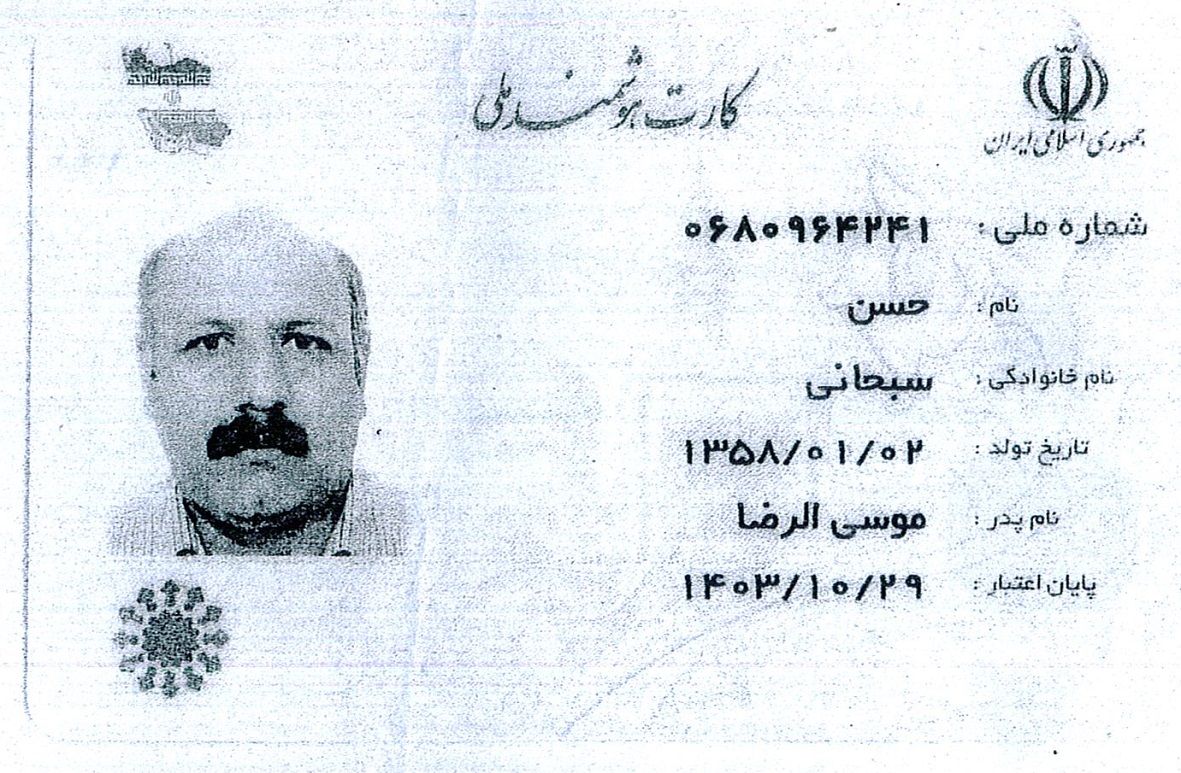 کارت هوشمند ملی
جمهوری اسلامی ایران
شماره ملی : ۰۶۸۰۹۶۴۲۴۱
نام : حسن
نام خانوادگی : سبحانی
تاریخ تولد : ۱۳۵۸/۰۱/۰۲
نام پدر : موسی الرضا
پایان اعتبار : ۱۴۰۳/۱۰/۲۹